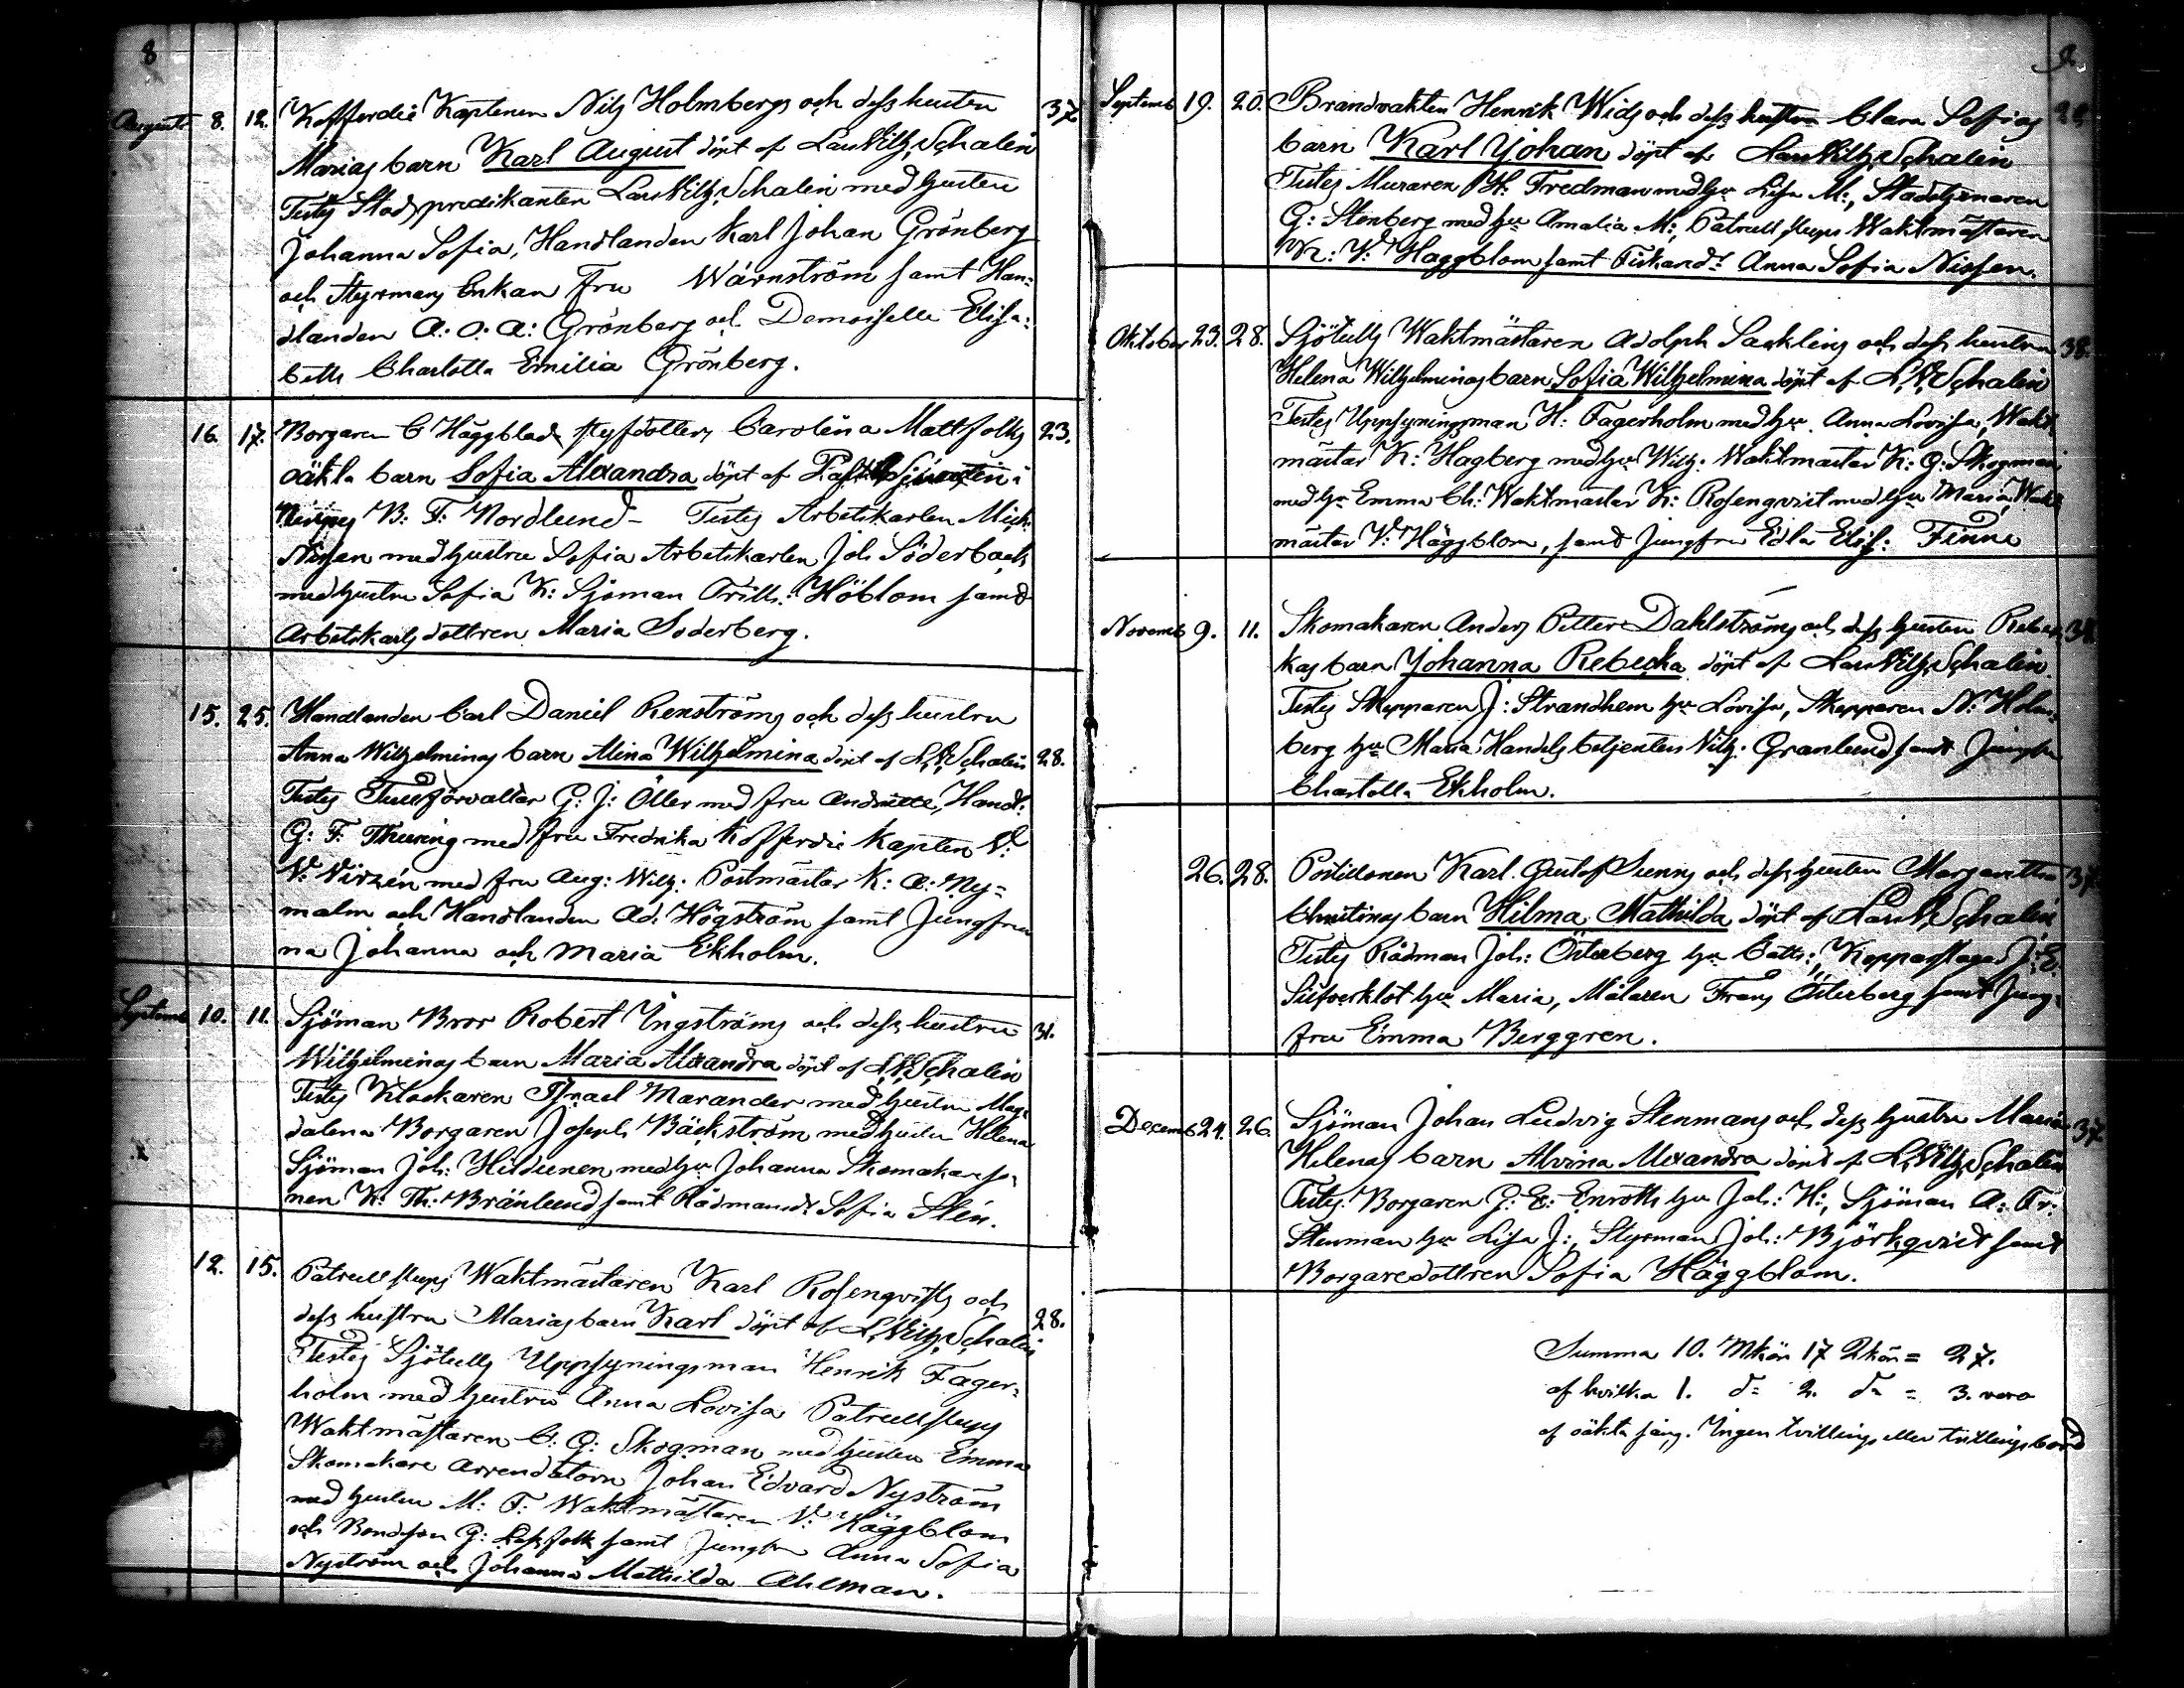 8
Augusti 8. 12. Kofferdie Kaptenen Nils Holmbergs och dess hustru 37
Marias barn Karl August döpt af Lars Vilh. Schalin
Testes Stadspredikanten Lars Vilh. Schalin med hustru
Johanna Sofia, Handlanden Karl Johan Grönberg
och Styrmans Enkan Fru Wärnström samt Han-
dlanden A: O: A: Grönberg och Demoiselle Elisa-
beth Charlotta Emilia Grönberg.
16. 17. Borgaren C Häggblads styfdotters Carolina Mattfolks 23.
oäkta barn Sofia Alexandra döpt af
B: F: Nordlund - Testes Arbetskarlen Mich.
Nissen med hustru Sofia Arbetskarlen Joh Söderback
med hustru Sofia K: Sjöman Höblom samt
Arbetskarls dottren Maria Söderberg.
15. 25. Handlanden Carl Daniel Renströms och dess hustru
Anna Wilhelminas barn Mina Wilhelmina döpt af L.V. Schalin 28.
Testes Tullförvaltar G: J: Öller med fru Handl.
G: F: Thuring med fru Fredrika Kofferdie Kapten V:
V: Nirzén med fru Aug: Wilh: Postmästar K: A: Ny-
malm och Handlanden Ad. Högström samt Jungfrur
na Johanna och Maria Ekholm.
Septemb 10. 11. Sjöman Bror Robert Yngströms och dess hustru 31.
Wilhelminas barn Maria Alexandra döpt af L.V. Schalin
Testes Klockaren Israel Marander med hustru Mag-
dalena Borgaren Joseph Bäckström med hustru Helena
Sjöman Joh: Hildunen med hu Johanna Skomakareso-
nen K: Th: Bränlund samt Rådmansd. Sofia Stén.
12. 15. Patrullsleups Waktmästaren Karl Rosenqvists och
dess hustru Marias barn Karl döpt af L. Vilh. Schalin 28.
Testes Sjötulls Uppsyningsman Henrik Fager-
holm med hustru Anna Lovisa Patrullsleups
Waktmästaren C: G: Skogman med hustru Emma
Skomakare Arrendatorn Johan Edvard Nyström
med hustru M: F: Waktmästaren V: Häggblom
och Bondeson G: samt Jungfru Anna Sofia
Nyström och Johanna Mathilda Ahlman.
9.
Septemb 19. 20. Brandvakten Henrik Wids och dess hustru Clara Sofias 28
barn Karl Johan döpt af Lars Vilh. Schalin
Testes Muraren H: Fredman med hu Lisa M:, Stadstjenaren
G: Stenberg med hu Amalia M:, Patrull sleups Waktmästaren
V: Häggblom samt Anna Sofia Nissen.
Oktober 23. 28. Sjötulls Waktmästaren Adolph Sacklins och dess hustru 38.
Helena Wilhelminas barn Sofia Wilhelmina döpt af L.V. Schalin
Testes Uppsyningsman H: Fagerholm med hu Anna Lovisa, Wakt-
mästar K: Hagberg med hu Wilh: Waktmästar K: G: Skogman
med hu Emma Ch: Waktmästar K: Rosenqvist med hu Maria, Wakt-
mästar V: Häggblom, samt Jungfru Edla Elis: Finne
Novemb 9. 11. Skomakaren Anders Petter Dahlströms och dess hustru Rebec- 38
kas barn Johanna Rebecka döpt af Lars Vilh. Schalin.
Testes Skepparen J: Strandhem hu Lovisa, Skepparen N: Holm-
berg hu Maria Handels betjenten Vilh: Granlund samt Jungfru
Charlotta Ekholm.
26. 28. Postillonen Karl Gustof Sunns och dess hustru Margaretha 37
Christinas barn Hilma Mathilda döpt af Lars V. Schalin
Testes Rådman Joh: Österberg hu Cath:, Kopparslagar J: E:
Silfverklot hu Maria, Målaren Frans Österberg samt Jung-
fru Emma Berggren.
Decemb 24. 26. Sjöman Johan Ludvig Stenmans och dess hustru Maria 37
Helenas barn Alvina Alexandra döpt af L. Vilh. Schalin
Testes. Borgaren G: E: Enroth hu Joh: H:, Sjöman A: Fr:
Stenman hu Lisa J:, Styrman Joh: Björkqvist samt
Borgaredottren Sofia Häggblom.
Summa 10. Mkön 17 Qkön = 27.
af hvilka 1. d= 2. d= = 3. voro
af oäkta säng. Ingen tvillings eller trillingsbörd